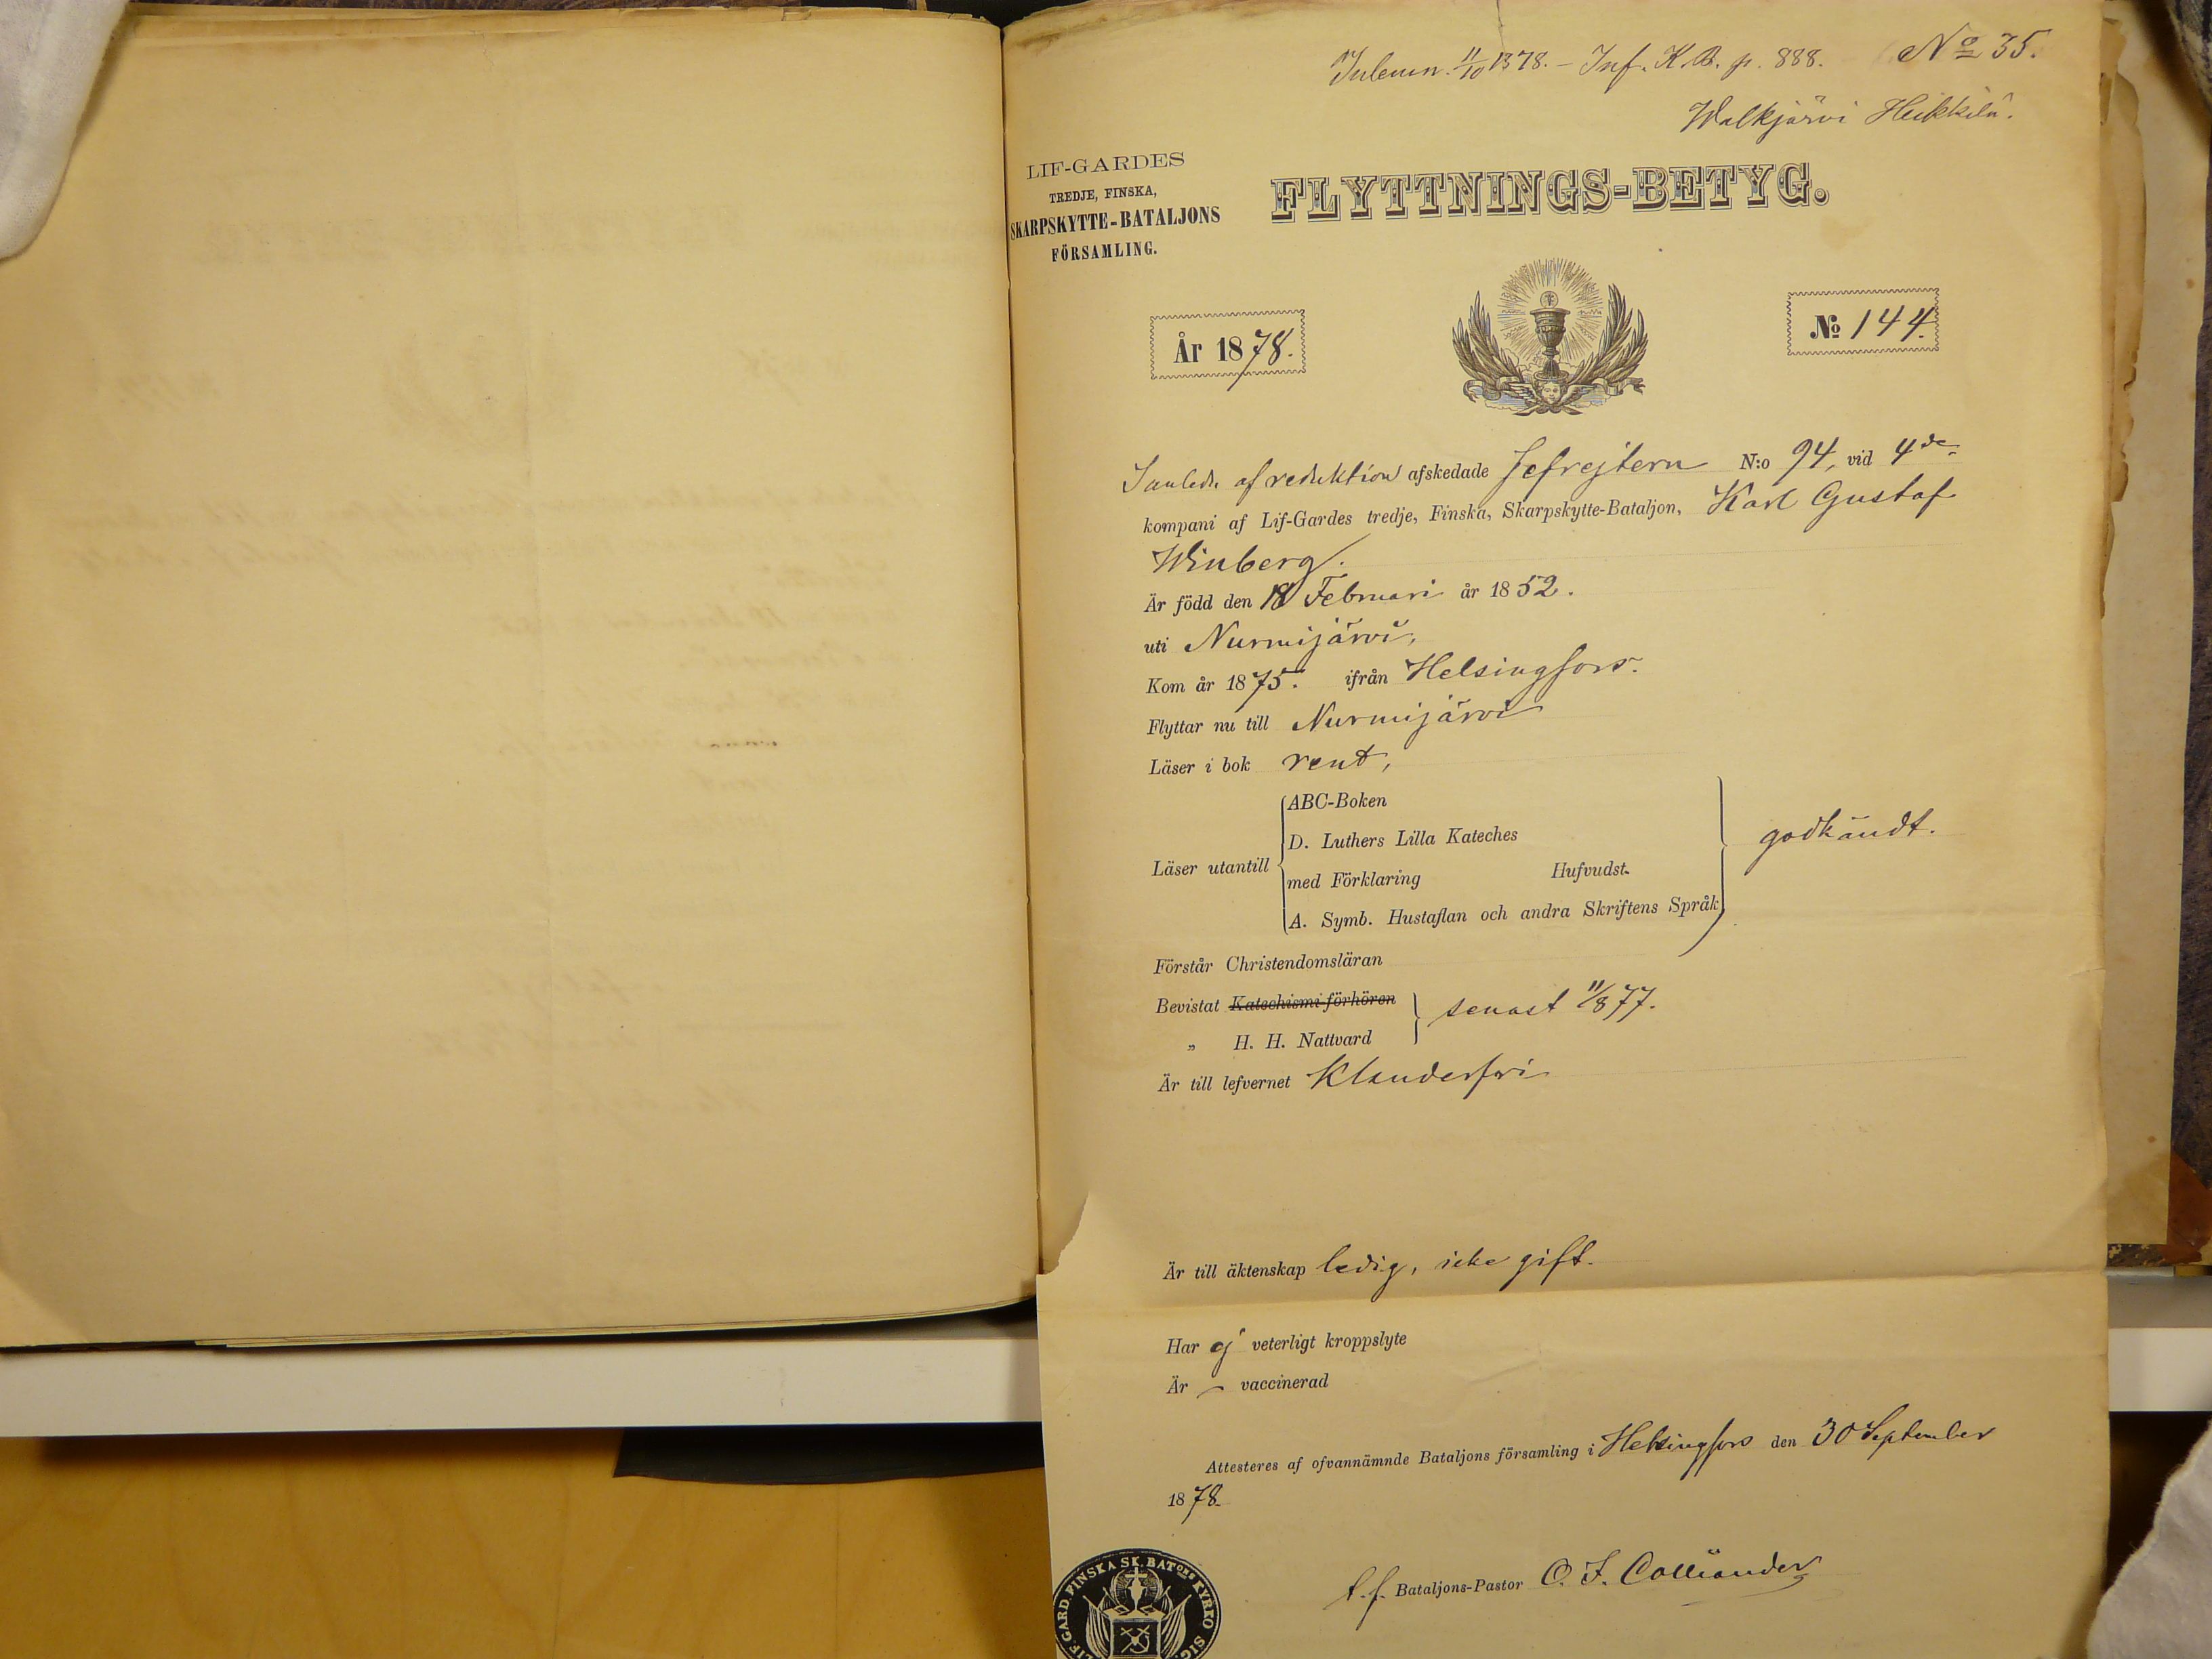 Inlemn. 11/10 1878. – Inf. K.B. p. 888. No 35.
Walkjärvi Heikkilä.
LIF-GARDES
TREDJE, FINSKA,
SKARPSKYTTE-BATALJONS
FÖRSAMLING.
FLYTTNINGS-BETYG.
År 1878.
No 144.
af reduktion afskedade Gefrejtern N:o 94, vid 4de
kompani af Lif-Gardes tredje, Finska, Skarpskytte-Bataljon, Karl Gustaf
Winberg.
Är född den 18 Februari år 1852.
uti Nurmijärvi,
Kom år 1875. ifrån Helsingfors.
Flyttar nu till Nurmijärvi
Läser i bok rent,
Läser utantill
ABC-Boken
D. Luthers Lilla Kateches
med Förklaring Hufvudst.
A. Symb. Hustaflan och andra Skriftens Språk
godkändt.
Förstår Christendomsläran
Bevistat Katechismi-förhören
„ H. H. Nattvard
senast 11/8 77.
Är till lefvernet Klanderfri
Är till äktenskap ledig, icke gift.
Har ej veterligt kroppslyte
Är vaccinerad
Attesteras af ofvannämnde Bataljons församling i Helsingfors den 30 September
1878.
t.f. Bataljons-Pastor O. F. Colliander
LIF.GARD. FINSKA SK. BATONS KYRKO SIG